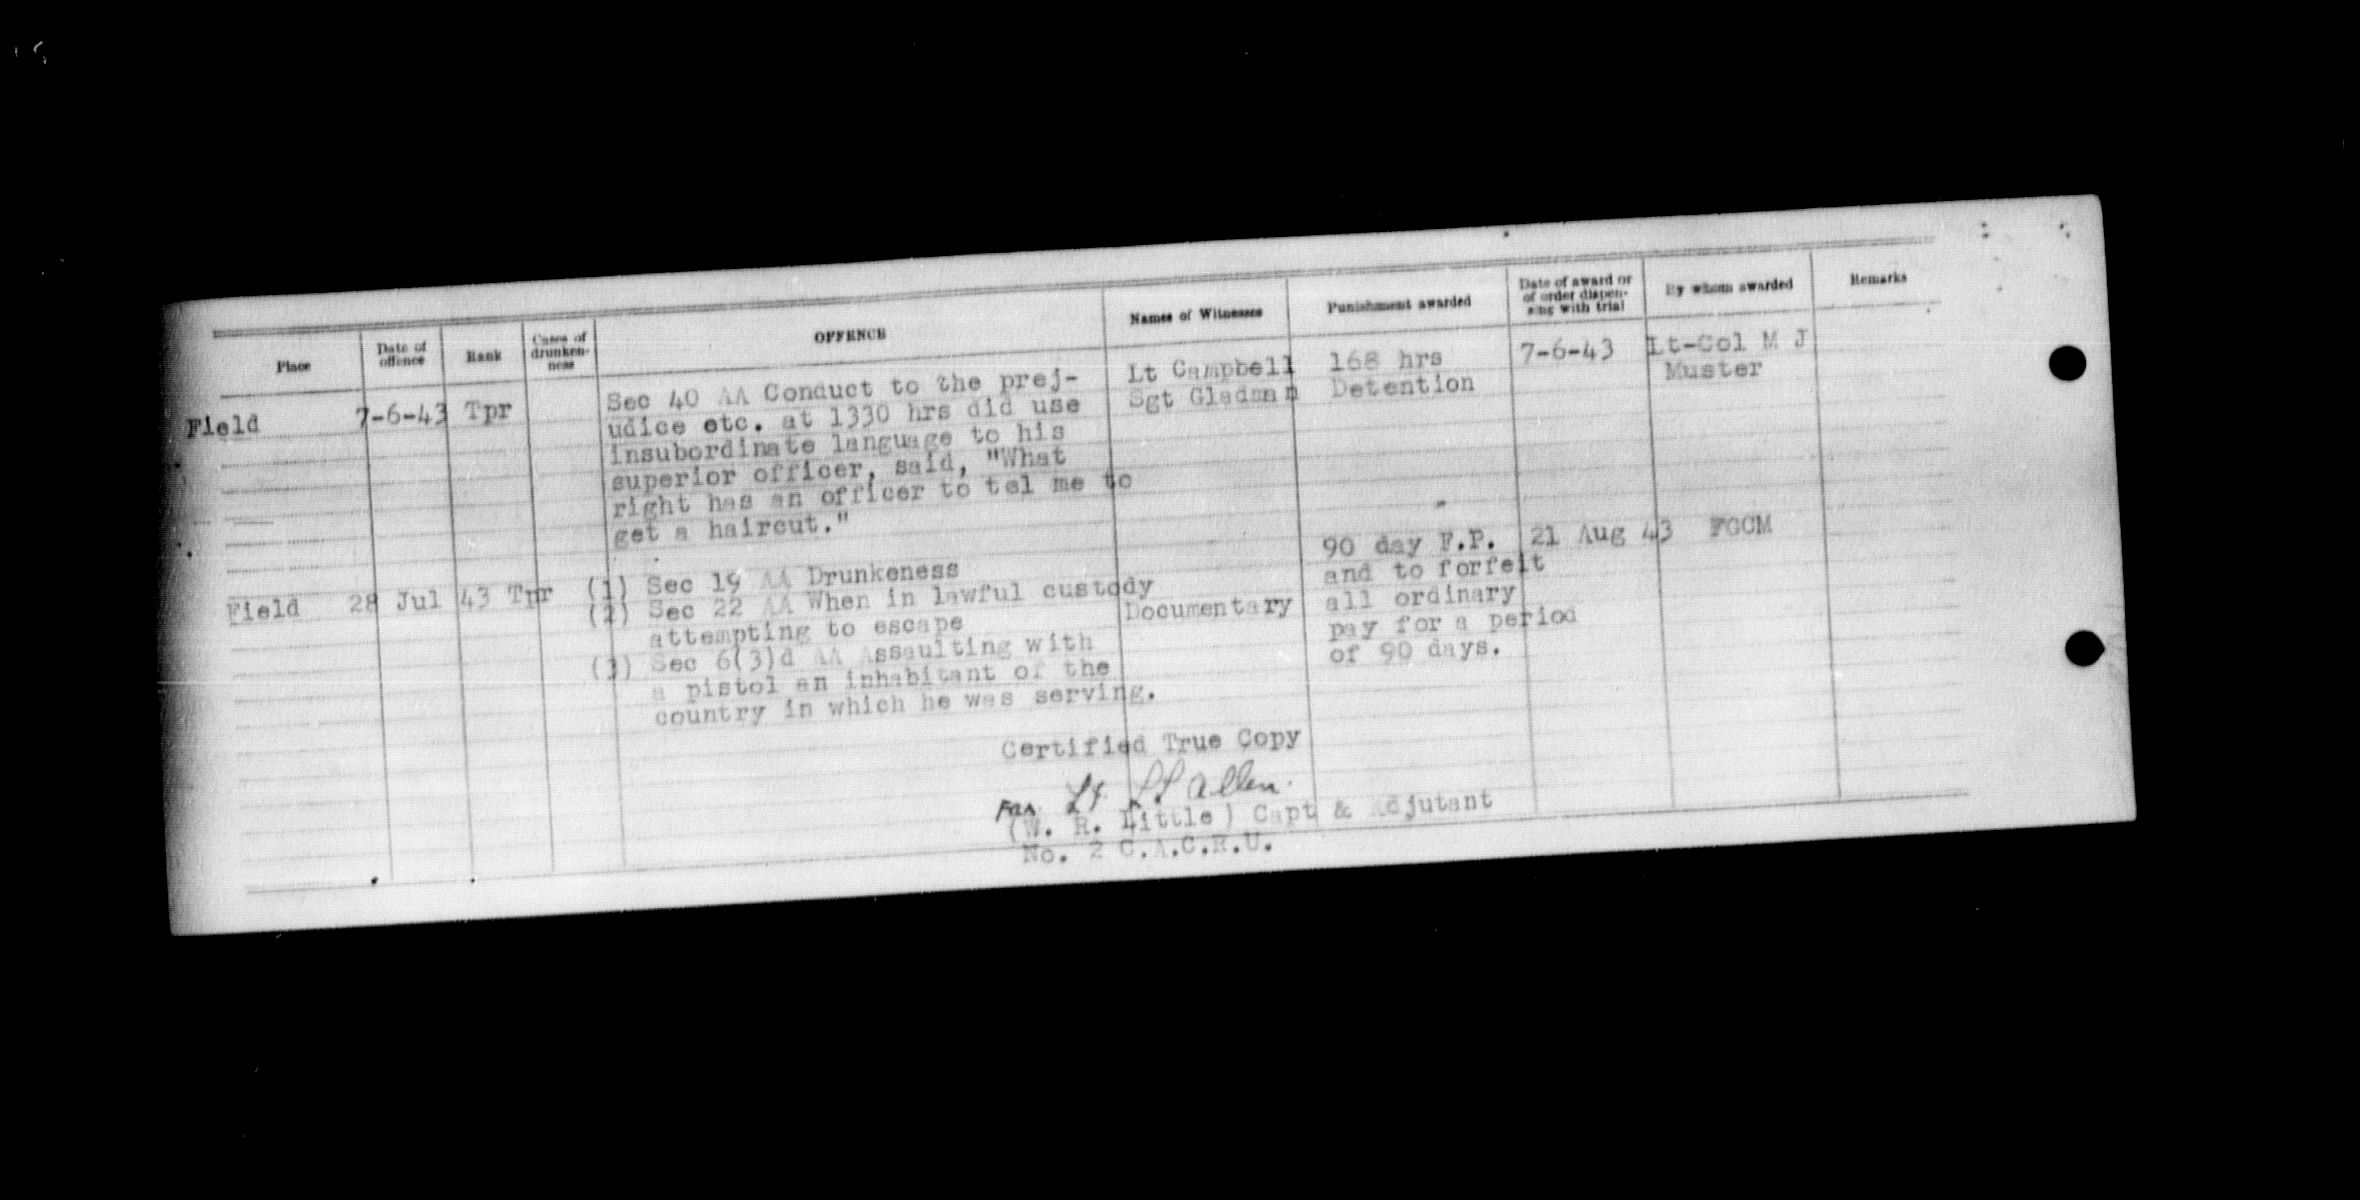 Place
Date of
offence
Rank
Cases of
drunken-
ness
OFFENCE
Names of Witnesses
Punishment awarded
Date of award or
of order dispen-
sing with trial
By whom awarded
Remarks
Field
7-6-43
Tpr
Sec 40 AA Conduct to the prej-
udice etc. at 1330 hrs did use
insubordinate language to his
superior officer, said, "What
right has an officer to tel me to
get a haircut."
Lt Campbell
Sgt Gladman
168 hrs
Detention
7-6-43
Lt-Col M J
Muster
Field
28 Jul 43
Tpr
(1) Sec 19 AA Drunkeness
(2) Sec 22 AA When in lawful custody
attempting to escape
(3) Sec 6(3)d AA Assaulting with
a pistol an inhabitant of the
country in which he was serving.
Documentary
90 day F.P.
and to forfeit
all ordinary
pay for a period
of 90 days.
21 Aug 43
FGCM
Certified True Copy
For Lt Allen
(W. R. Little) Capt & Adjutant
No. 2 C.A.C.R.U.